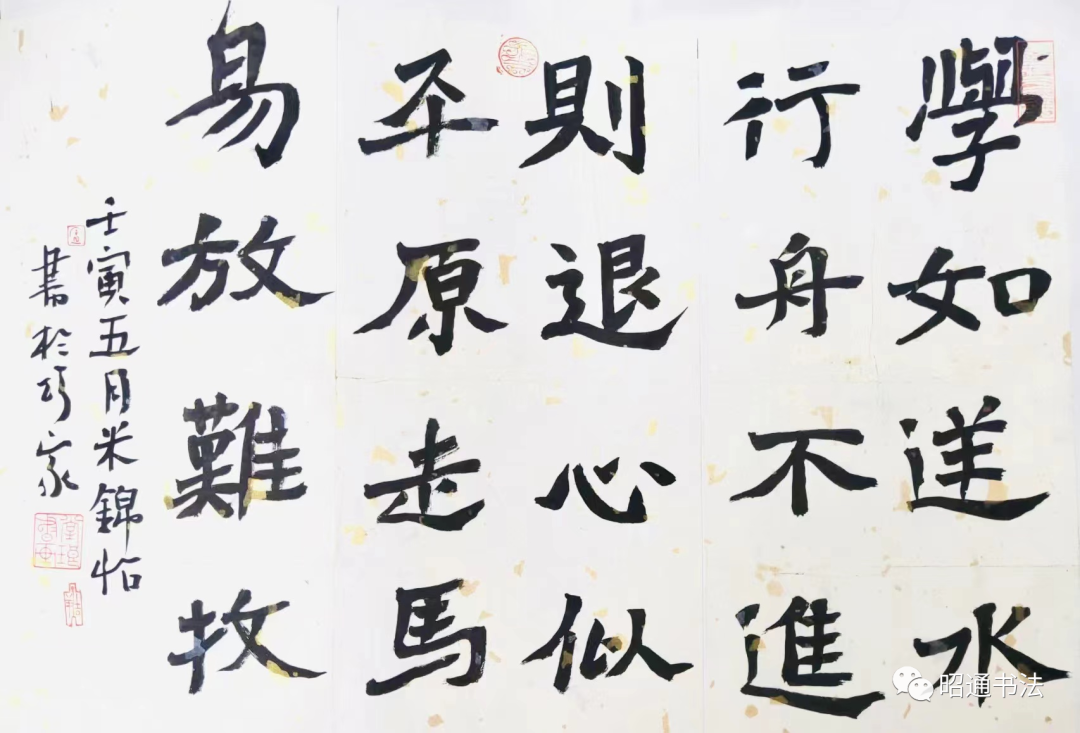 學如逆水
行舟不進
則退心似
平原走馬
易放難收
壬寅五月米錦怡
書於巧家
昭通书法